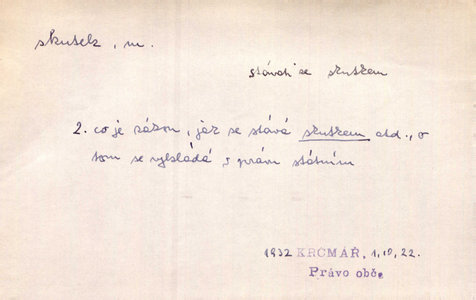 skutek, m.
stávati se skutkem
2. co je zákon, jak se stává skutkem atd., o
tom se vykládá v právu státním
1932 KRČMÁŘ, 1, 10, 22.
Právo obč.